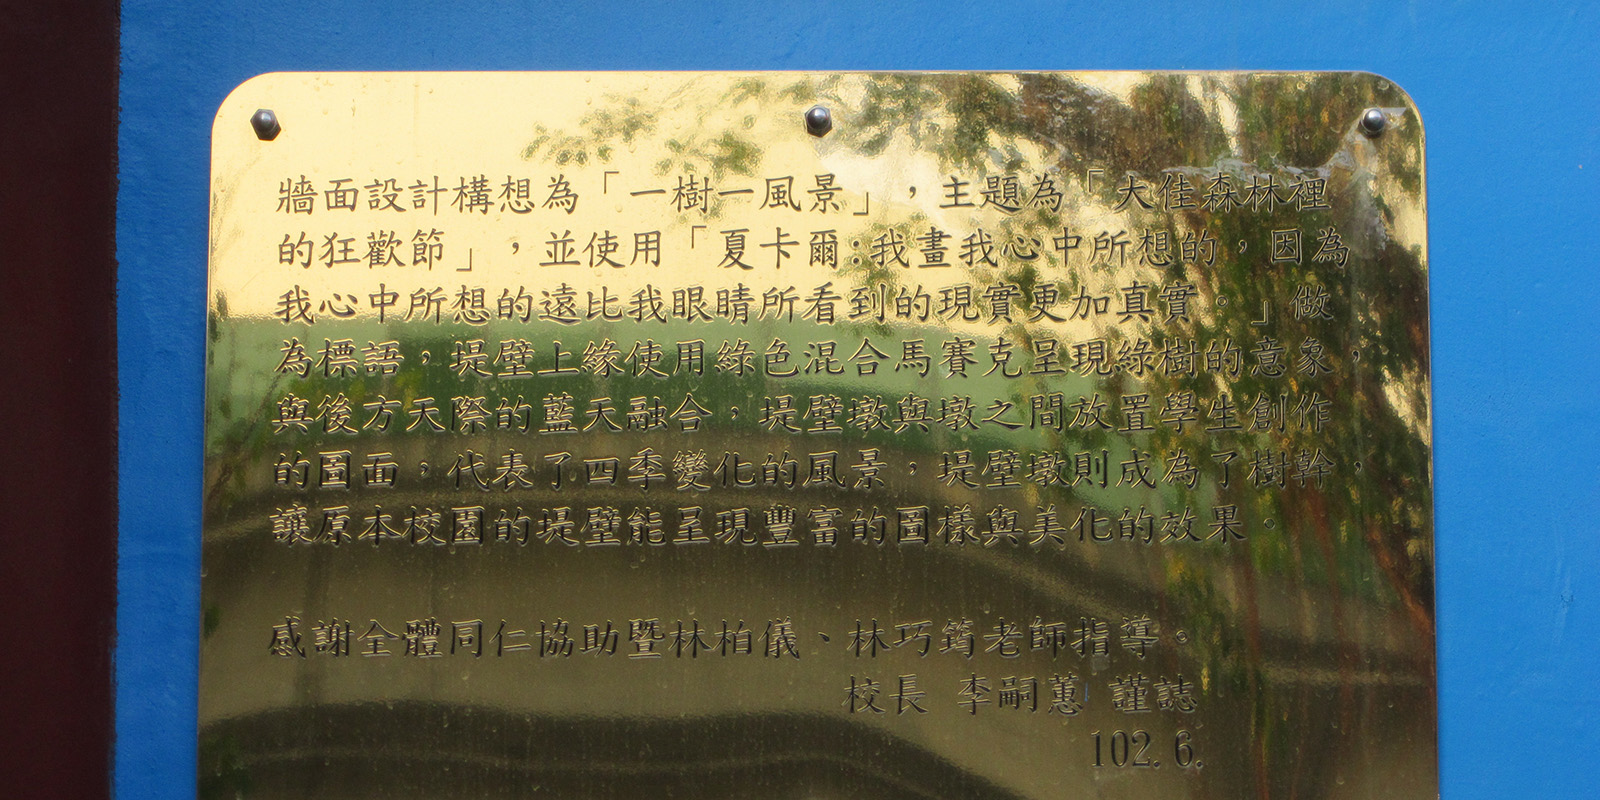 牆面設計構想為「一樹一風景」，主題為「大佳森林裡
的狂歡節」，並使用「夏卡爾:我畫我心中所想的，因為
我心中所想的遠比我眼睛所看到的現實更加真實。」做
為標語，堤壁上緣使用綠色混合馬賽克呈現綠樹的意象，
與後方天際的藍天融合，堤壁墩與墩之間放置學生創作
的圖面，代表了四季變化的風景，堤壁墩則成為了樹幹，
讓原本校園的堤壁能呈現豐富的圖樣與美化的效果。
感謝全體同仁協助暨林柏儀、林巧筠老師指導。
校長 李嗣蕙 謹誌
102.6.